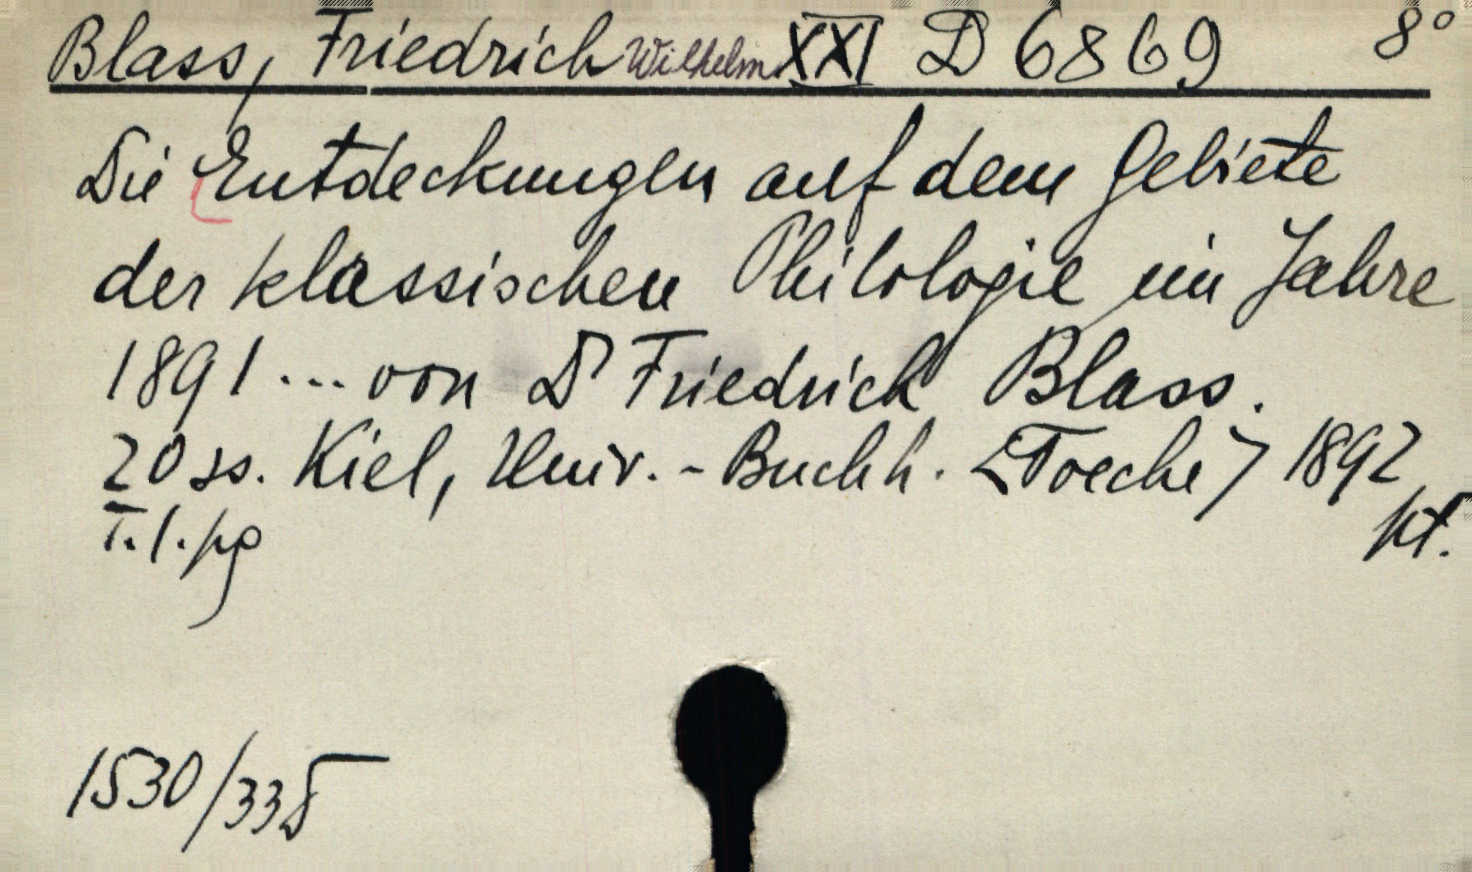 Blass, Friedrich Wilhelm XXI D 6869 8°
Die Entdeckungen auf dem Gebiete
der klassischen Philologie im Jahre
1891 ... von Dr Friedrich Blass.
20 ss. Kiel, Univ.-Buchh. <Toeche> 1892
T. l. pg pt.
1530/335